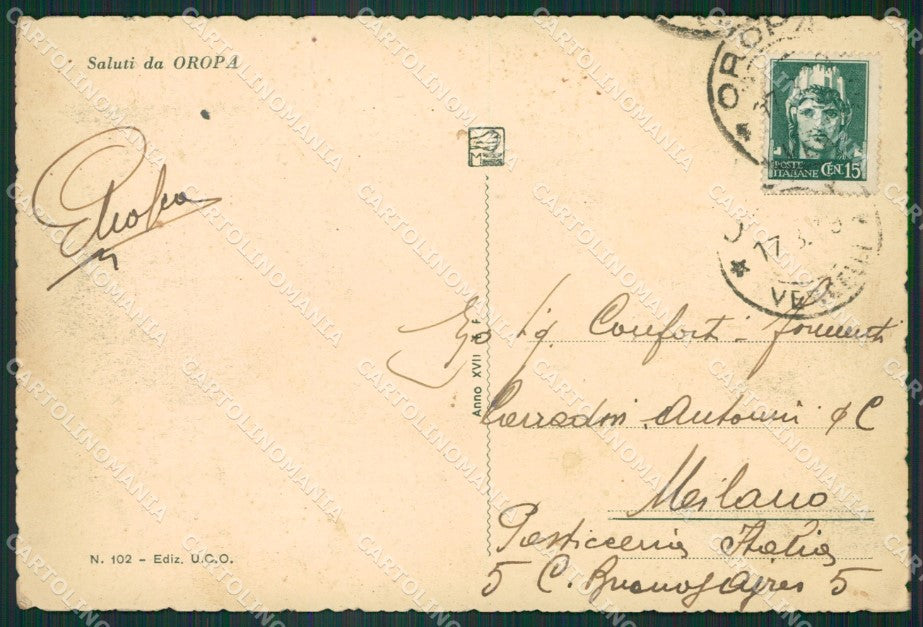 Saluti da OROPA
OROPA
POSTE
ITALIANE CEN. 15
17
VERCELLI
M
Sig. Conforti - Formenti
Corradini Antonini & C
Milano
Pasticceria Italia
5 C. Buenos Ayres 5
Anno XVII
N. 102 - Ediz. U.C.O.
CARTOLINOMANIA